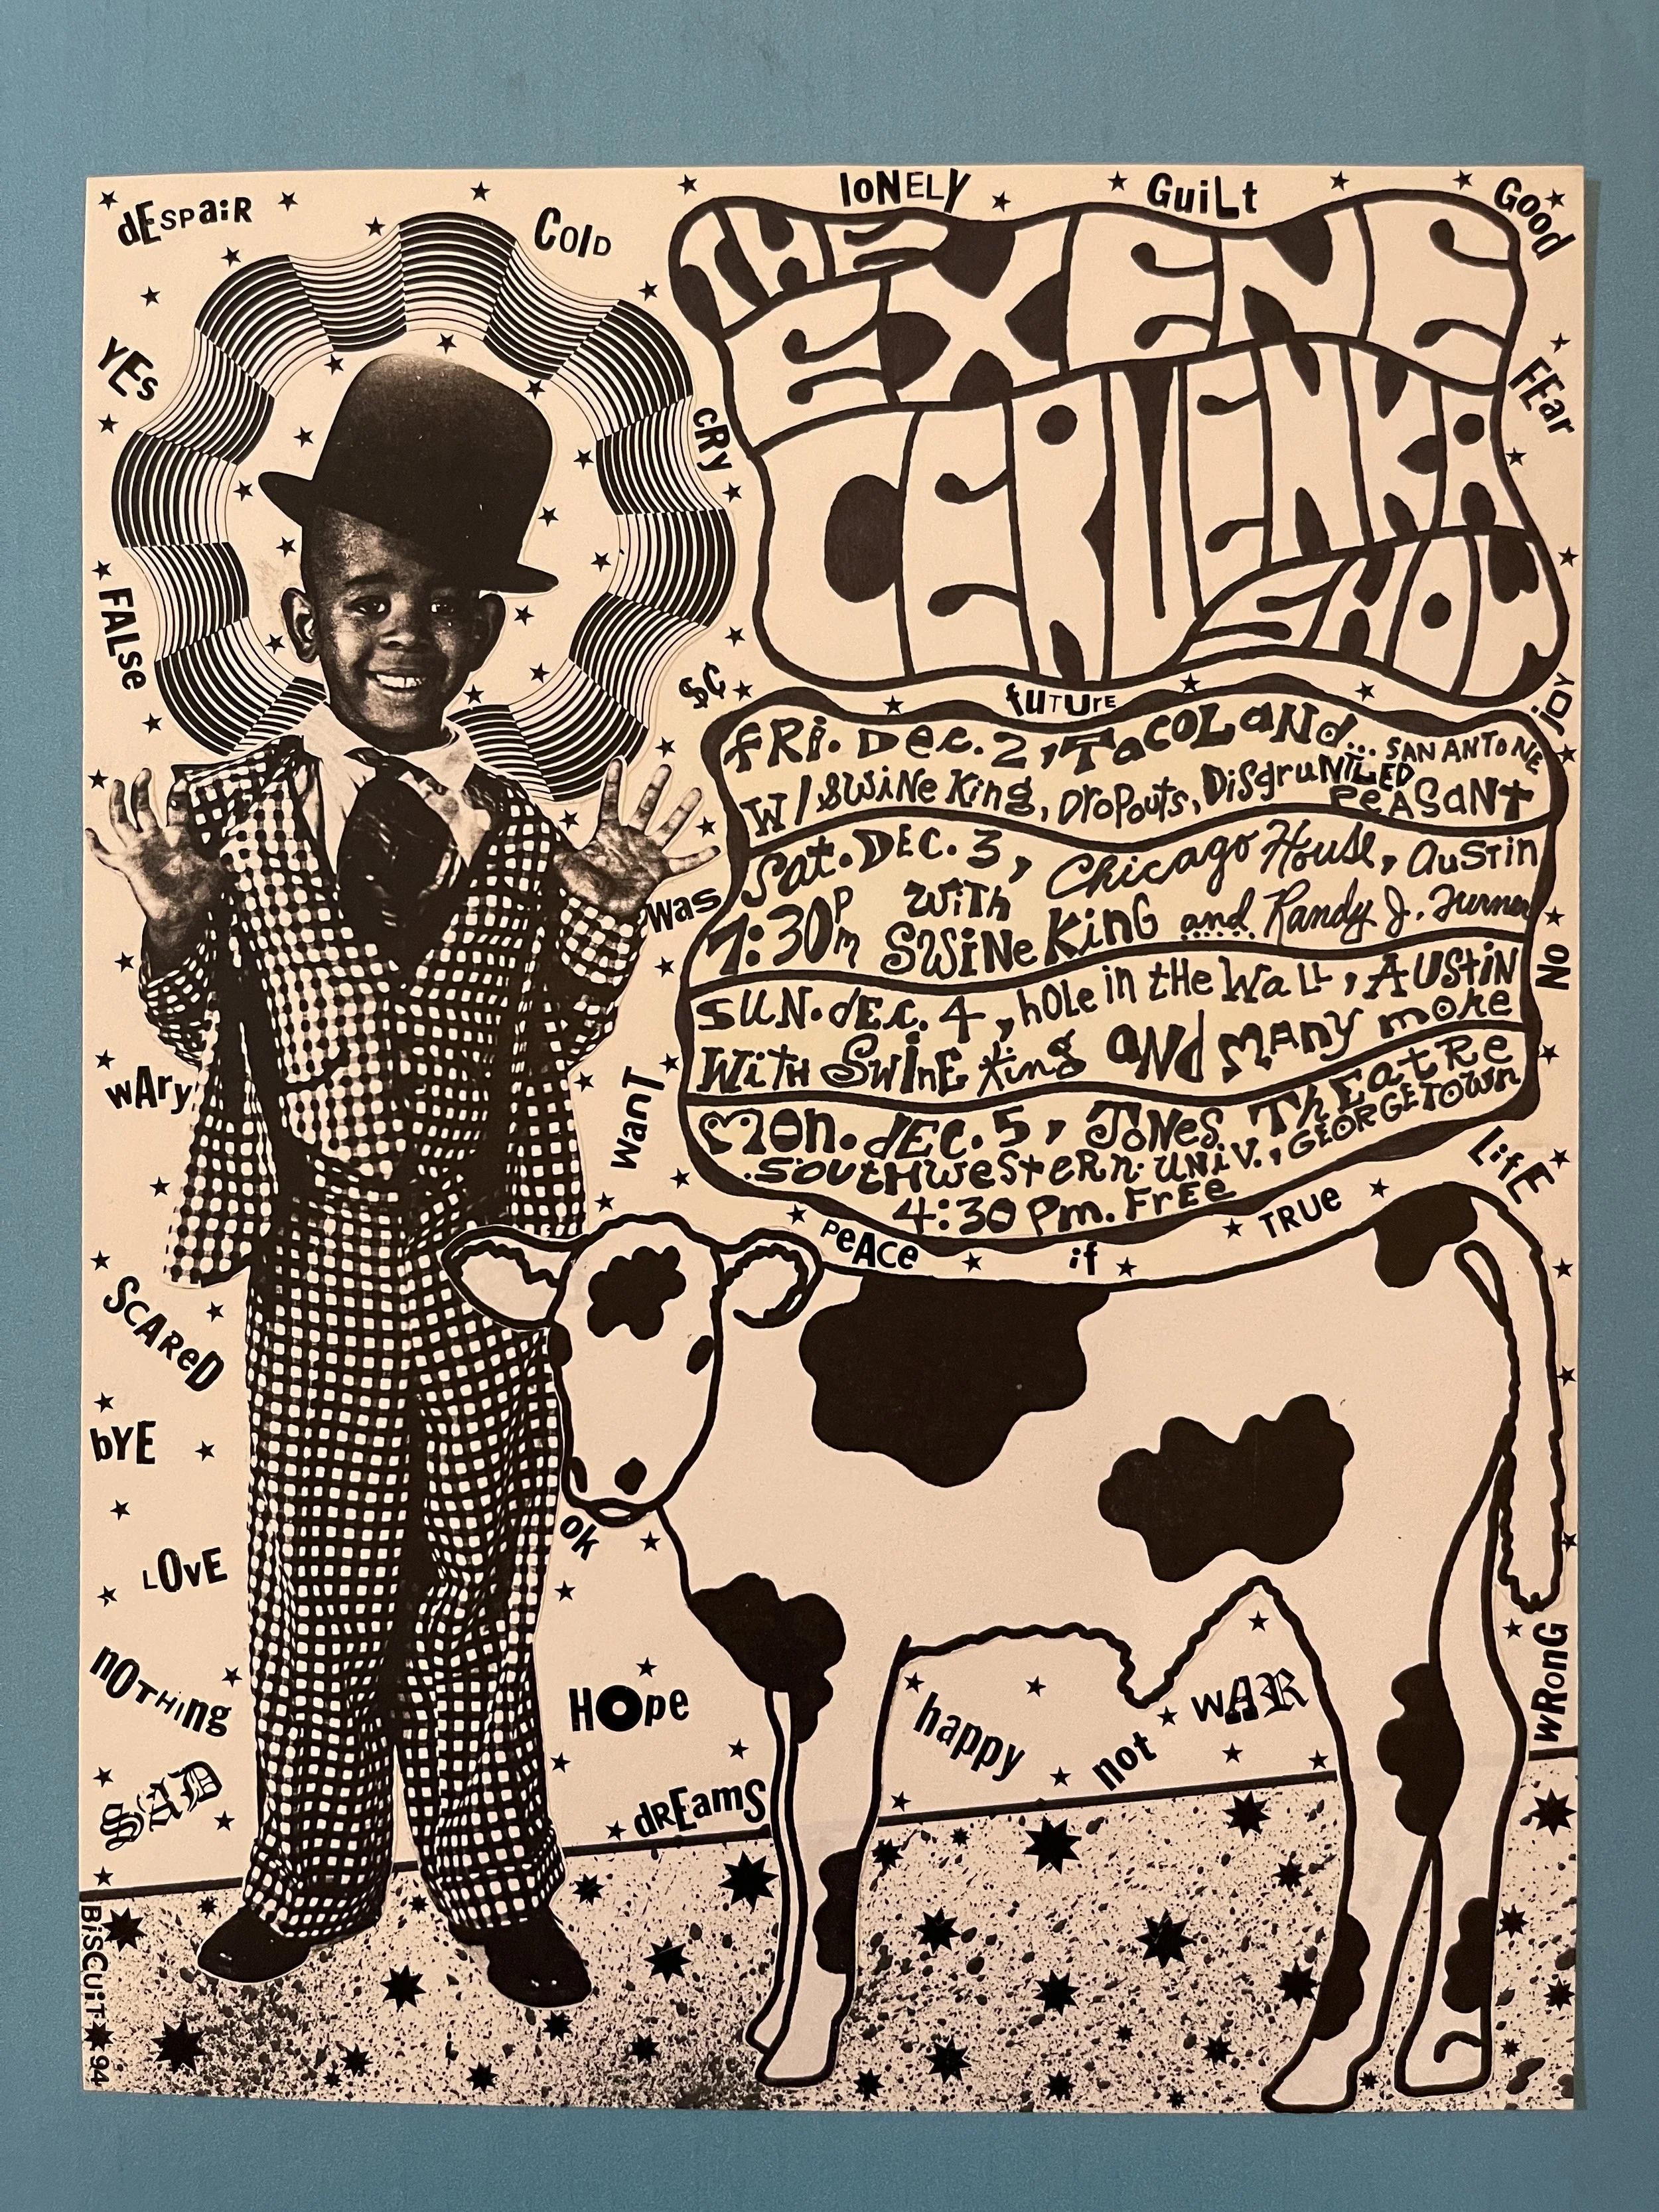 dEspaiR
Cold
loNELY
GuiLt
Good
THE
EXENE
CERVENKA
SHOW
YEs
CRy
FEar
FALse
$¢
fuTUre
jOY
FRi. Dec. 2, TacoLaNd... SAN ANTONE
W/ SWiNe King, DropOuts, DiSgruNTLED
PeASaNt
Sat. DEC. 3, Chicago House, AuSTin
7:30pm with SWiNe KinG and Randy J. Turner
SUN. dEc. 4, hOle in tHe WaLL, AUStiN
WiTH SwInE King aNd MANy moRe
MOn. dEC. 5, JoNes THEatRe
SOutHwesteRn UNiV., GEORGETOWN
4:30 Pm. FrEe
Was
No
wAry
WanT
LifE
PeACe
if
TRUe
SCAReD
bYE
ok
LOvE
nOTHing
HOpe
happy
not
wAR
wRonG
SAD
drEamS
BiSCuiT★94